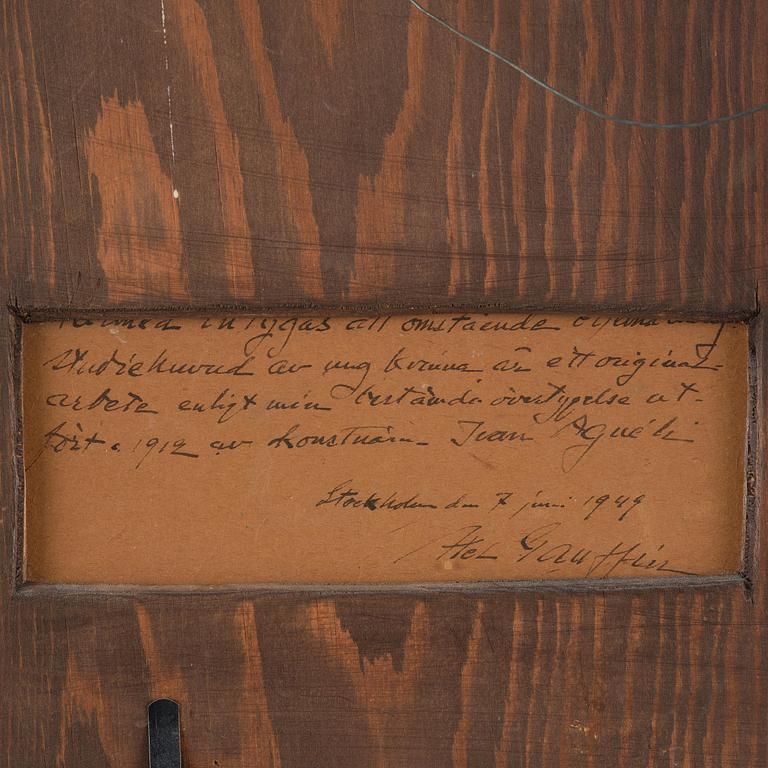 Härmed intygas att omstående
studiehuvud av ung kvinna är ett original-
arbete enligt min bestämda övertygelse ut-
fört 1912 av konstnären Ivan Aguéli
Stockholm den 7 juni 1949
Axel Gauffin